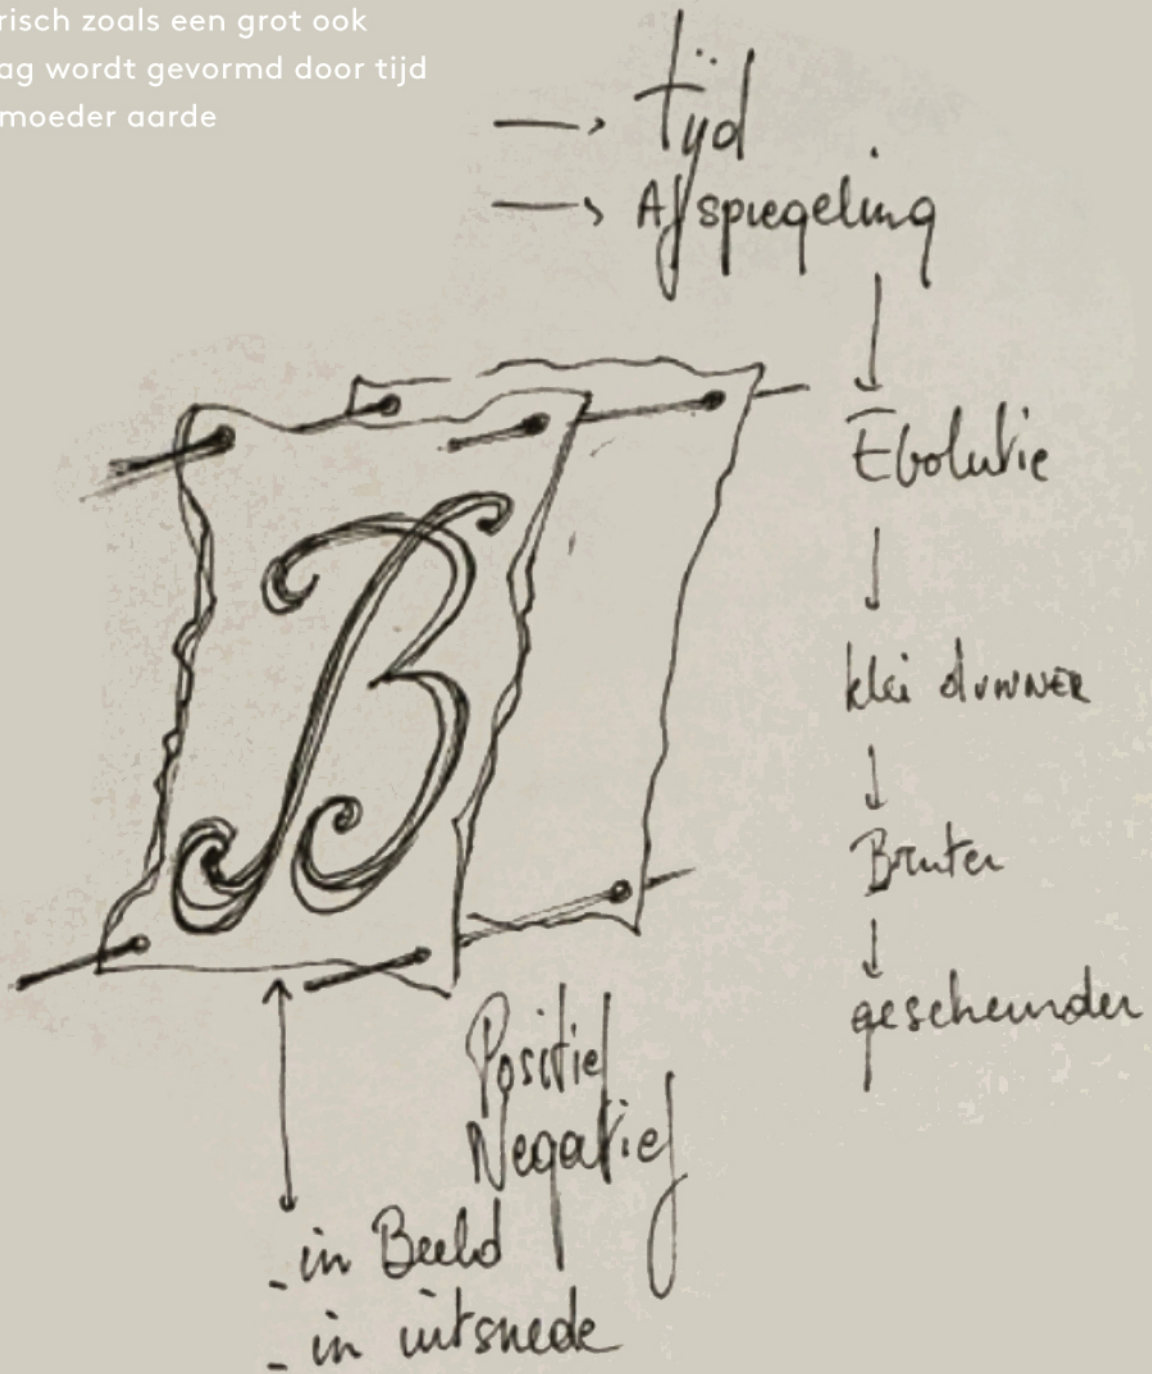 risch zoals een grot ook
ag wordt gevormd door tijd
moeder aarde
→ tijd
→ Afspiegeling
↓
Evolutie
↓
klei dunner
↓
Bruter
↓
gescheurder
B
Positief
Negatief
- in Beeld
- in uitsnede